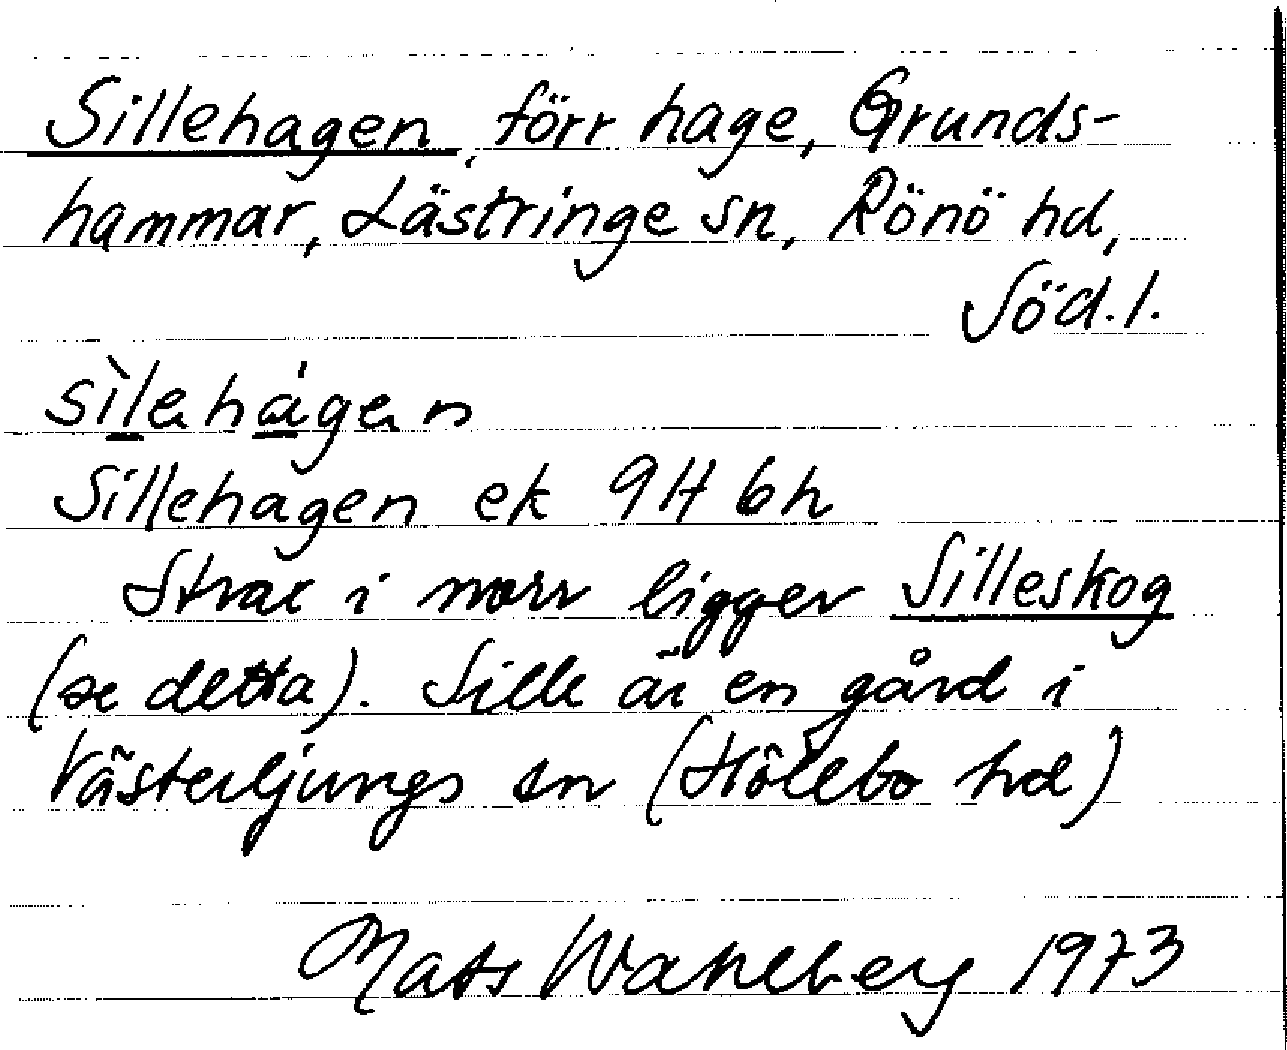 Sillehagen, förr hage, Grunds-
hammar, Lästringe sn, Rönö hd,
Söd.l.
sìlehágen
Sillehagen ek 9H 6h
Strax i norr ligger Silleskog
(se detta). Sille är en gård i
Västerljungs sn (Hölebo hd)
Mats Wahlberg 1973